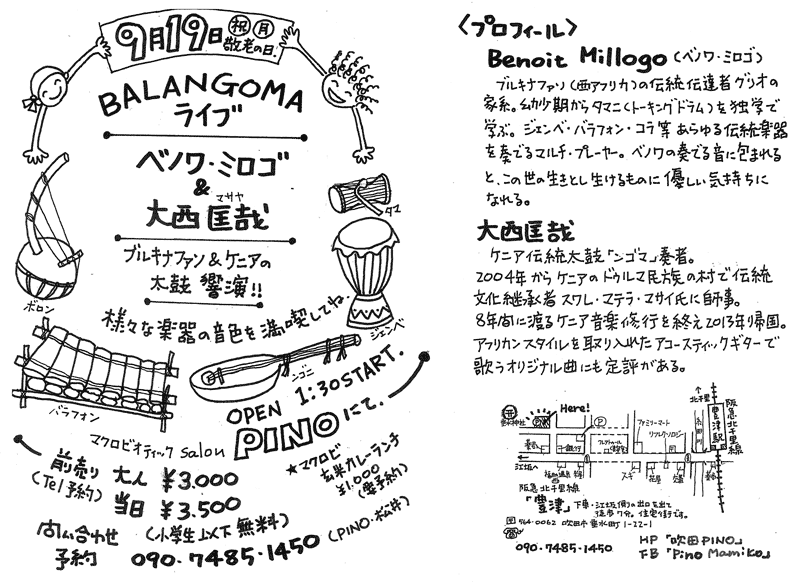 9月19日 祝 月
敬老の日.
BALANGOMA
ライブ
ベノワ・ミロゴ
&
マサヤ
大西 匡哉
ブルキナファソ&ケニアの
太鼓 響演!!
様々な楽器の音色を満喫してね。
タマ
ボロン
ジェンベ
ンゴニ
バラフォン
OPEN 1:30START.
マクロビオティック salon PINOにて.
前売り 大人 ¥3.000
(Tel予約) 当日 ¥3.500
★マクロビ
玄米カレーランチ
¥1.000
(要予約)
問い合わせ (小学生以下無料)
予約 090-7485-1450 (PINO・松井)
<プロフィール>
Benoit Millogo (ベノワ・ミロゴ)
ブルキナファソ(西アフリカ)の伝統伝達者グリオの
家系。幼少期からタマニ(トーキングドラム)を独学で
学ぶ。ジェンベ・バラフォン・コラ等 あらゆる伝統楽器
を奏でるマルチ・プレーヤー。ベノワの奏でる音に包まれる
と、この世の生きとし生けるものに優しい気持ちに
なれる。
大西匡哉
ケニア伝統太鼓「ンゴマ」奏者。
2004年からケニアのドゥルマ民族の村で伝統
文化継承者 スワレ・マテラ・マサイ氏に師事。
8年間に渡るケニア音楽修行を終え2013年帰国。
アフリカンスタイルを取り入れたアコースティックギターで
歌うオリジナル曲にも定評がある。
Here!
P
ファミリーマート
リフレクソロジー
↑北千里
阪急北千里線
豊津駅
江坂へ
スギ
阪急 北千里線
「豊津」下車・江坂側の出口を出て
徒歩7分。住宅街です。
〒564-0062 吹田市垂水町1-22-1
☎090-7485-1450
HP「吹田PINO」
FB「Pino Mamiko」